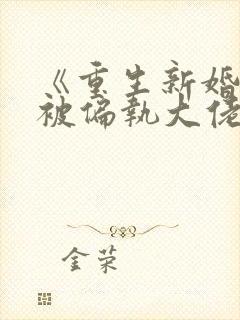 《重生新婚
被偏执大佬
金荣